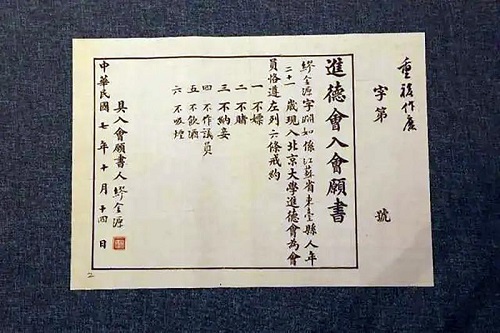 重複作廢
字第 號
進德會入會願書
繆金源字淵如係江蘇省東臺縣人年
二十一歲現入北京大學進德會為會
員恪遵左列六條戒約
一 不嫖
二 不賭
三 不納妾
四 不作議員
五 不飲酒
六 不吸煙
具入會願書人 繆金源
中華民國七年十月十四日
2